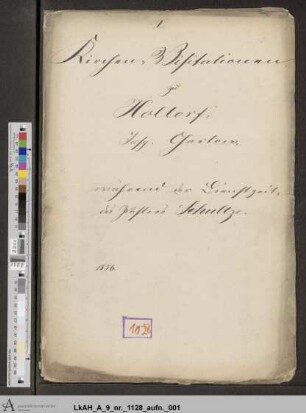 1
Kirchen-Visitationen
zu
Holtorf,
Insp. Gartow,
während der Dienstzeit
des Pastors Schultze.
1886.
1128
LkAH_A_9_nr._1128_aufn._001